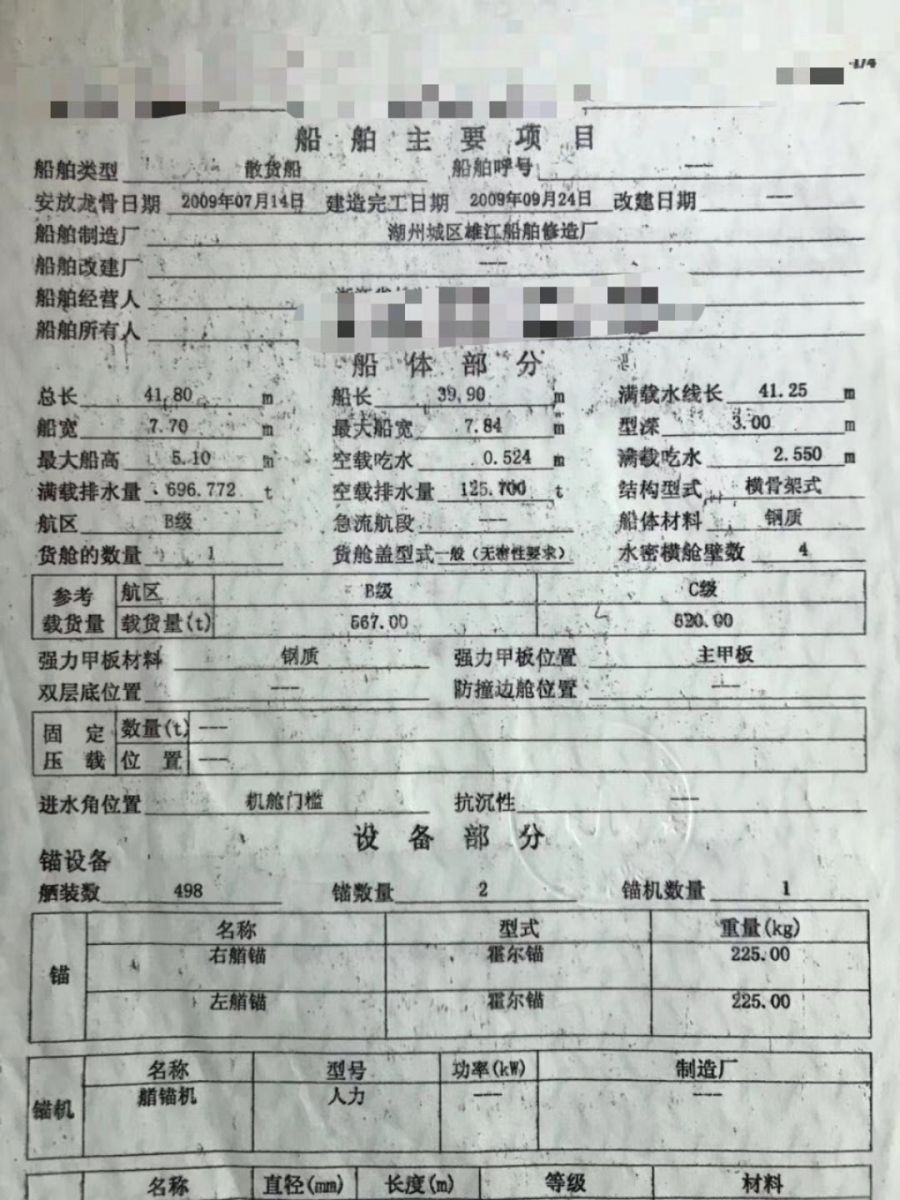 1/4
船 舶 主 要 项 目
船舶类型 散货船 船舶呼号 ---
安放龙骨日期 2009年07月14日 建造完工日期 2009年09月24日 改建日期 ---
船舶制造厂 湖州城区雄江船舶修造厂
船舶改建厂 ---
船舶经营人
船舶所有人
船 体 部 分
总长 41.80 m 船长 39.90 m 满载水线长 41.25 m
船宽 7.70 m 最大船宽 7.84 m 型深 3.00 m
最大船高 5.10 m 空载吃水 0.524 m 满载吃水 2.550 m
满载排水量 696.772 t 空载排水量 125.700 t 结构型式 横骨架式
航区 B级 急流航段 --- 船体材料 钢质
货舱的数量 1 货舱盖型式 一般（无密性要求） 水密横舱壁数 4
参考 航区 B级 C级
载货量 载货量(t) 567.00 520.00
强力甲板材料 钢质 强力甲板位置 主甲板
双层底位置 --- 防撞边舱位置 ---
固 定 数量(t) ---
压 载 位 置 ---
进水角位置 机舱门槛 抗沉性 ---
设 备 部 分
锚设备
舾装数 498 锚数量 2 锚机数量 1
名称 型式 重量(kg)
锚 右艏锚 霍尔锚 225.00
左艏锚 霍尔锚 225.00
名称 型号 功率(kW) 制造厂
锚机 艏锚机 人力 --- ---
名称 直径(mm) 长度(m) 等级 材料